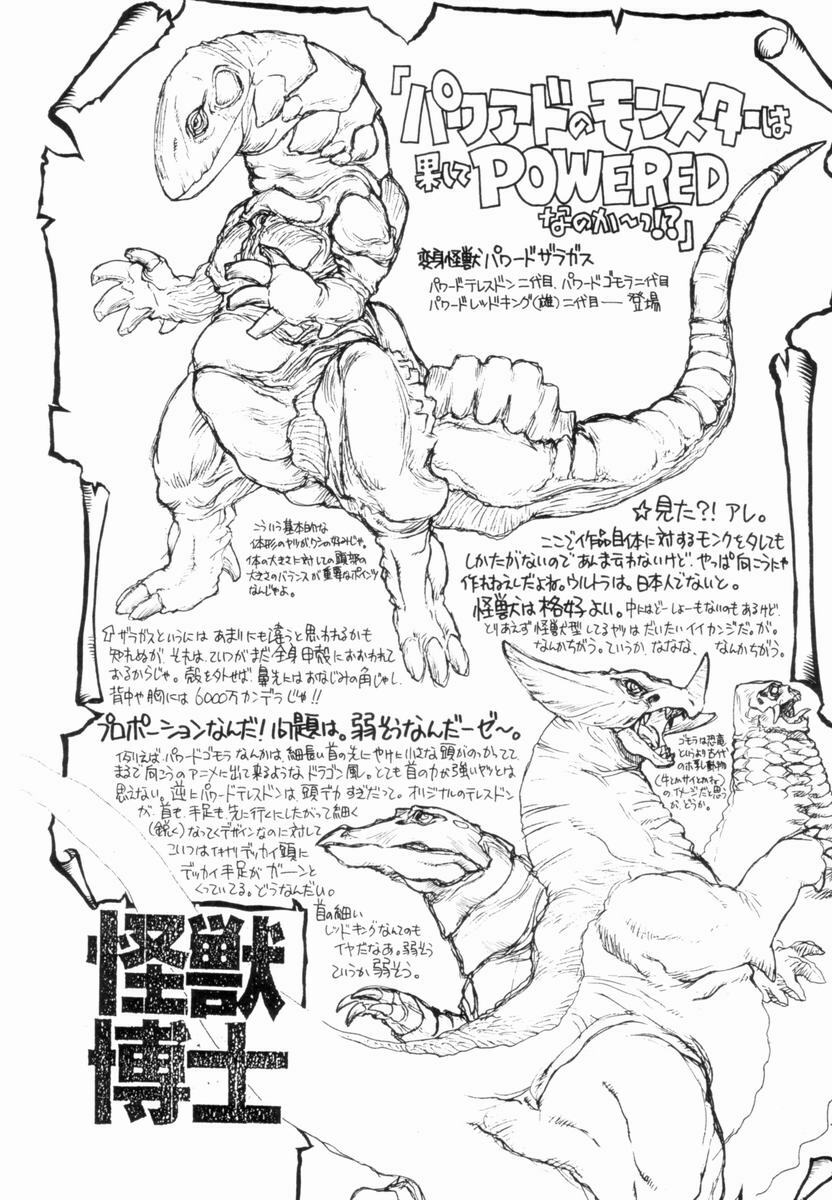 「パワァドのモンスターは
果してPOWERED
なのか〜っ!?」
変身怪獣パワードザラガス
パワードテレスドン二代目、パワードゴモラ二代目
パワードレッドキング(雄)二代目――登場
こういう基本的な
体形のヤツがワシの好みじゃ。
体の大きさに対しての頭部の
大きさのバランスが重要なポイント
なんじゃよ。
☆見た?! アレ。
ここで作品自体に対するモンクをタしても
しかたがないのであんま云わないけど、やっぱ向こうにゃ
作れねえんだよね。ウルトラは。日本人でないと。
怪獣は格好よい。中にはどーしょーもないのもあるけど、
とりあえず怪獣型してるヤツはだいたいイイカンジだ。が。
なんかちがう。ていうか、ななな、なんかちがう。
ザラガスというには あまりにも違うと思われるかも
知れぬが、それは、こいつがまだ全身甲殻におおわれて
おるからじゃ。殻を外せば、鼻先にはおなじみの角じゃし、
背中や胸には6000万カンデラじゃ!!
プロポーションなんだ!問題は。弱そうなんだーゼ〜。
例えば、パワードゴモラなんかは、細長い首の先にやけに小さな頭がのっかてて
まるで向こうのアニメに出て来るようなドラゴン風。とても首の力が強いヤツとは
思えない。逆にパワードテレスドンは、頭デカすぎだって。オリジナルのテレスドン
が、首も、手足も、先に行くにしたがって細く
(鋭く)なってくデザインなのに対して
こいつはデッカイ頭に
デッカイ手足がガーンと
くっついてる。どうなんだい。
ゴモラは恐竜
というより古代
のホ乳動物
(牛とかサイとかね)
のイメージだと思う
が、どうか。
首の細い
レッドキングなんてのも
イヤだなあ。弱そう
ていうか弱そう。
怪獣
博士